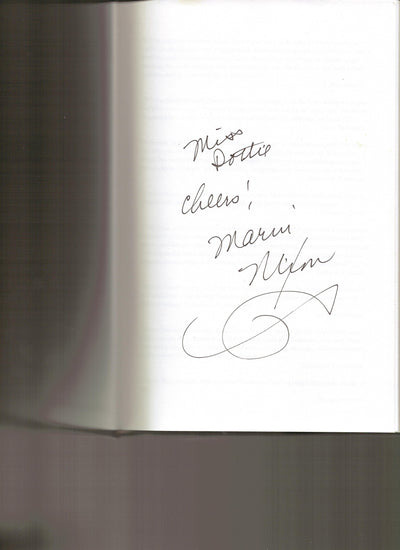 Miss
Dottie
Cheers!
Marni
Nixon